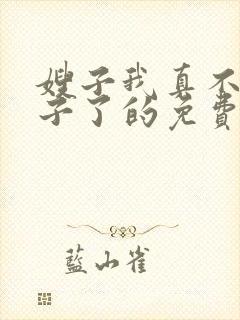 嫂子我真不
子了的免費
藍山雀